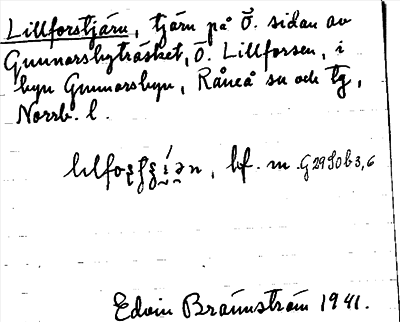 Lillforstjärn, tjärn på Ö. sidan av
Gunnarsbyträsket, Ö. Lillforsen, i
byn Gunnarsbyn, Råneå sn och tg,
Norrb. l.
bf. m. G29 SO b 3,6
Edvin Brännström 1941.